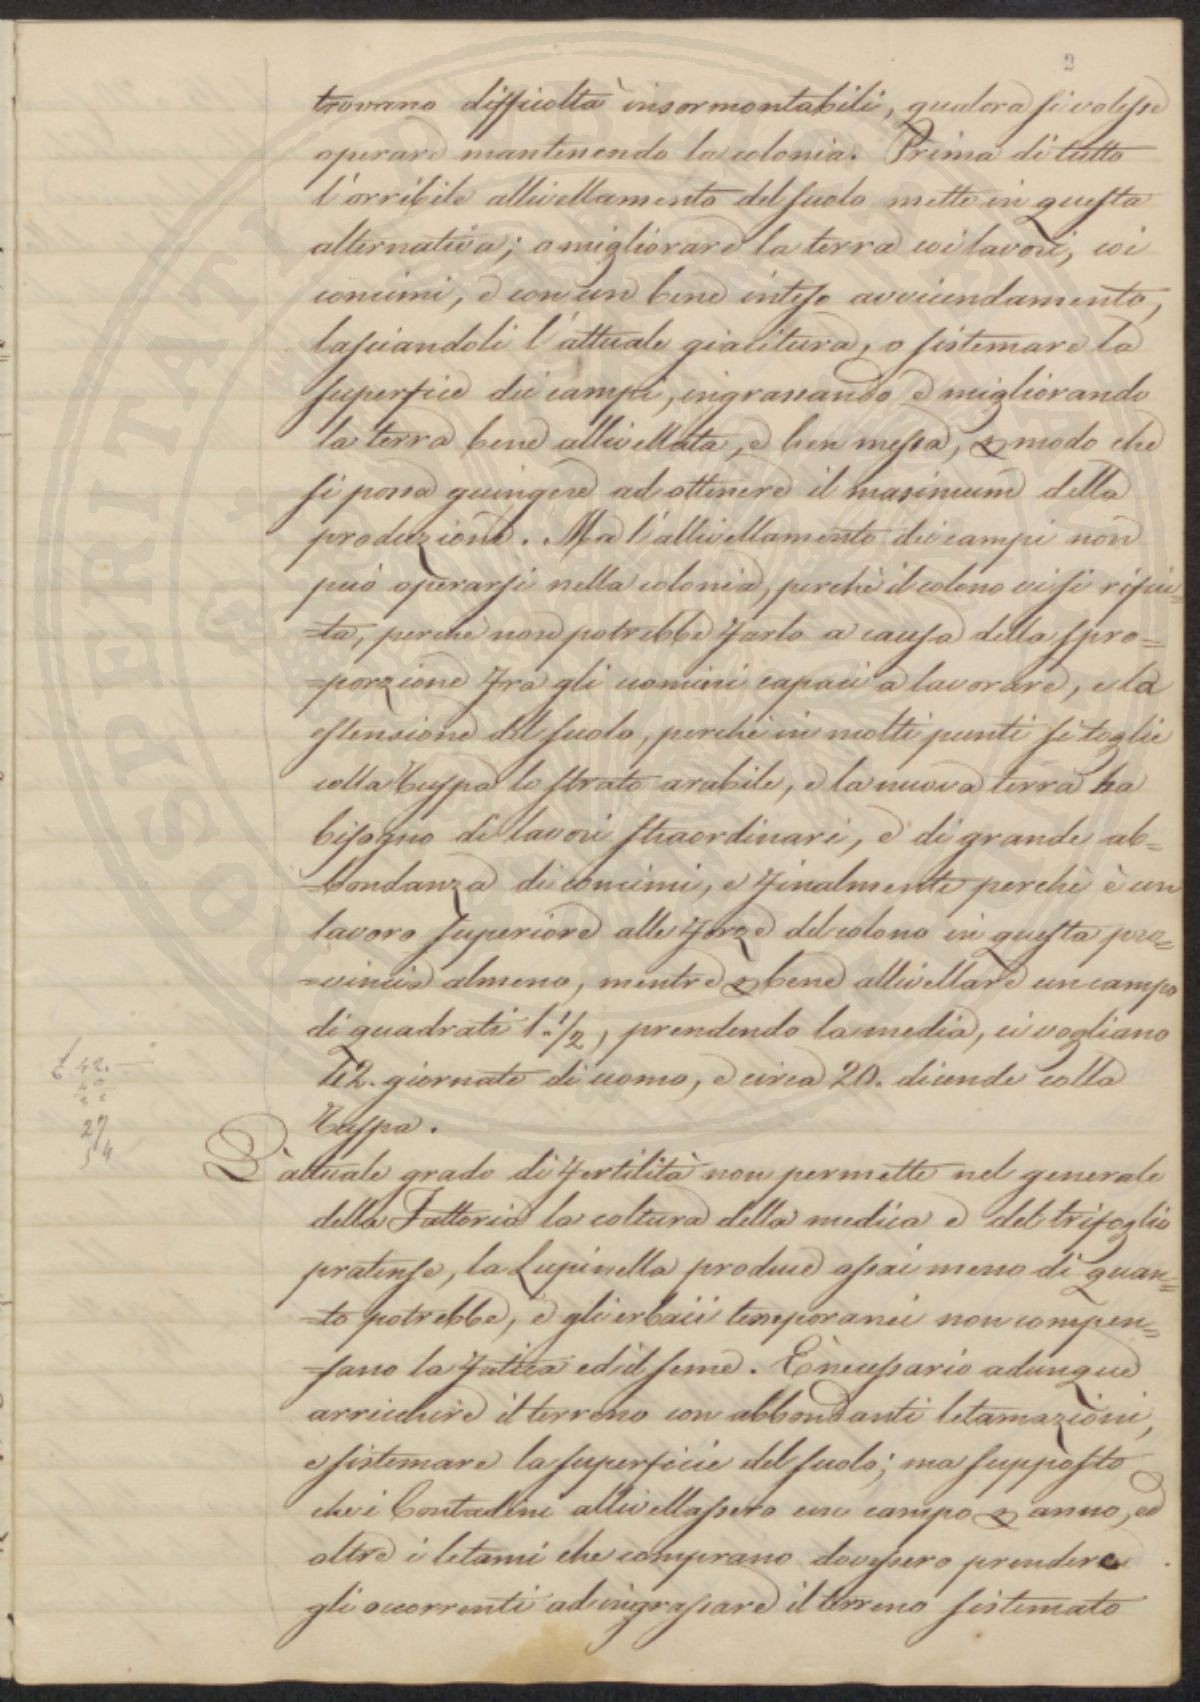 2
trovano difficoltà insormontabili, qualora si volesse
operare mantenendo la colonia. Prima di tutto
l'orribile allivellamento del suolo mette in questa
alternativa; o migliorare la terra coi lavori, coi
concimi, e con un bene inteso avvicendamento,
lasciandoli l'attuale giacitura, o sistemare la
superfice dei campi, ingrassando e migliorando
la terra bene allivellata, e ben messa, modo che
si possa guingere ad ottenere il maximum della
produzione. Ma l'allivellamento dei campi non
può operarsi nella colonia, perchè il colono vi si rifiu=
=ta, perchè non potrebbe farlo a causa della spro=
=porzione fra gli uomini capaci a lavorare, e la
estensione del suolo, perchè in molti punti si toglie
colla Ruspa lo strato arabile, e la nuova terra ha
bisogno di lavori straordinari, e di grande ab=
=bondanza di concimi, e finalmente perchè è un
lavoro superiore alle forze del colono in questa pro=
=vincia almeno, mentre bene allivellare un campo
di quadrati 1.½, prendendo la media, ci vogliano
12. giornate di uomo, e circa 20. dicende colla
Ruspa.
L'attuale grado di fertilità non permette nel generale
della Fattoria la coltura della medica e del trifoglio
pratense, la Lupinella produce assai meno di quan=
=to potrebbe, e gli erbaii temporanei non compen=
=sano la fatica ed il seme. È necessario adunque
arricchire il terreno con abbondanti letamazioni,
e sistemare la superficie del suolo; ma supposto
che i Contadini allivellassero un campo anno, ed
oltre i letami che comprano dovessero prendere
gli occorrenti ad ingrassare il terreno sistemato
42.
27
PROSPERITATI PUBLICAE